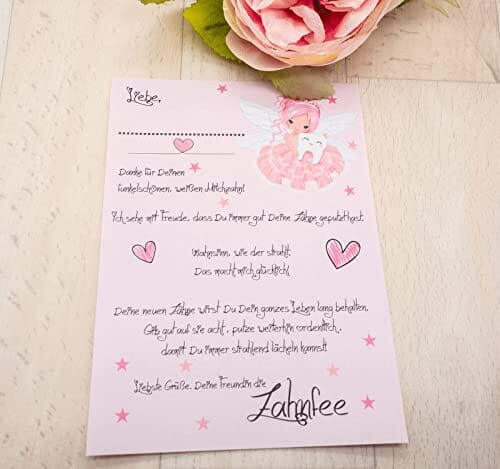 Liebe,
Danke für Deinen
funkelschönen, weißen Milchzahn!
Ich sehe mit Freude, dass Du immer gut Deine Zähne geputzt hast.
Wahnsinn, wie der strahlt.
Das macht mich glücklich!
Deine neuen Zähne wirst Du Dein ganzes Leben lang behalten.
Gib gut auf sie acht, putze weiterhin ordentlich,
damit Du immer strahlend lächeln kannst!
Liebste Grüße, Deine Freundin die
Zahnfee